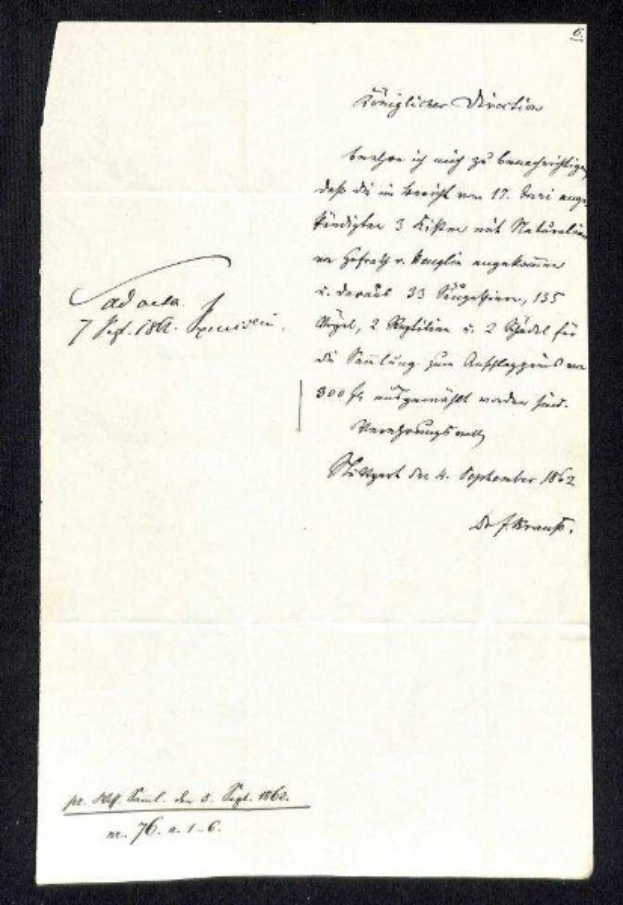 6.
Königlicher Direction
beehre ich mich zu benachrichtigen
daß die im Bericht vom 17. Juni ange-
kündigten 3 Kisten mit Naturalien
von Hofrath v. Heuglin angekommen
u. daraus 33 Säugethiere, 135
Vögel, 2 Reptilien u. 2 Schädel für
die Sammlung zum Anschlagpreis von
300 f. ausgewählt worden sind.
Verehrungsvoll
Stuttgart den 4. September 1862
Dr F. Krauß.
ad acta.
7 Sept. 1862.
pr. den 5. Sept. 1862.
nr. 76. a. 1-6.